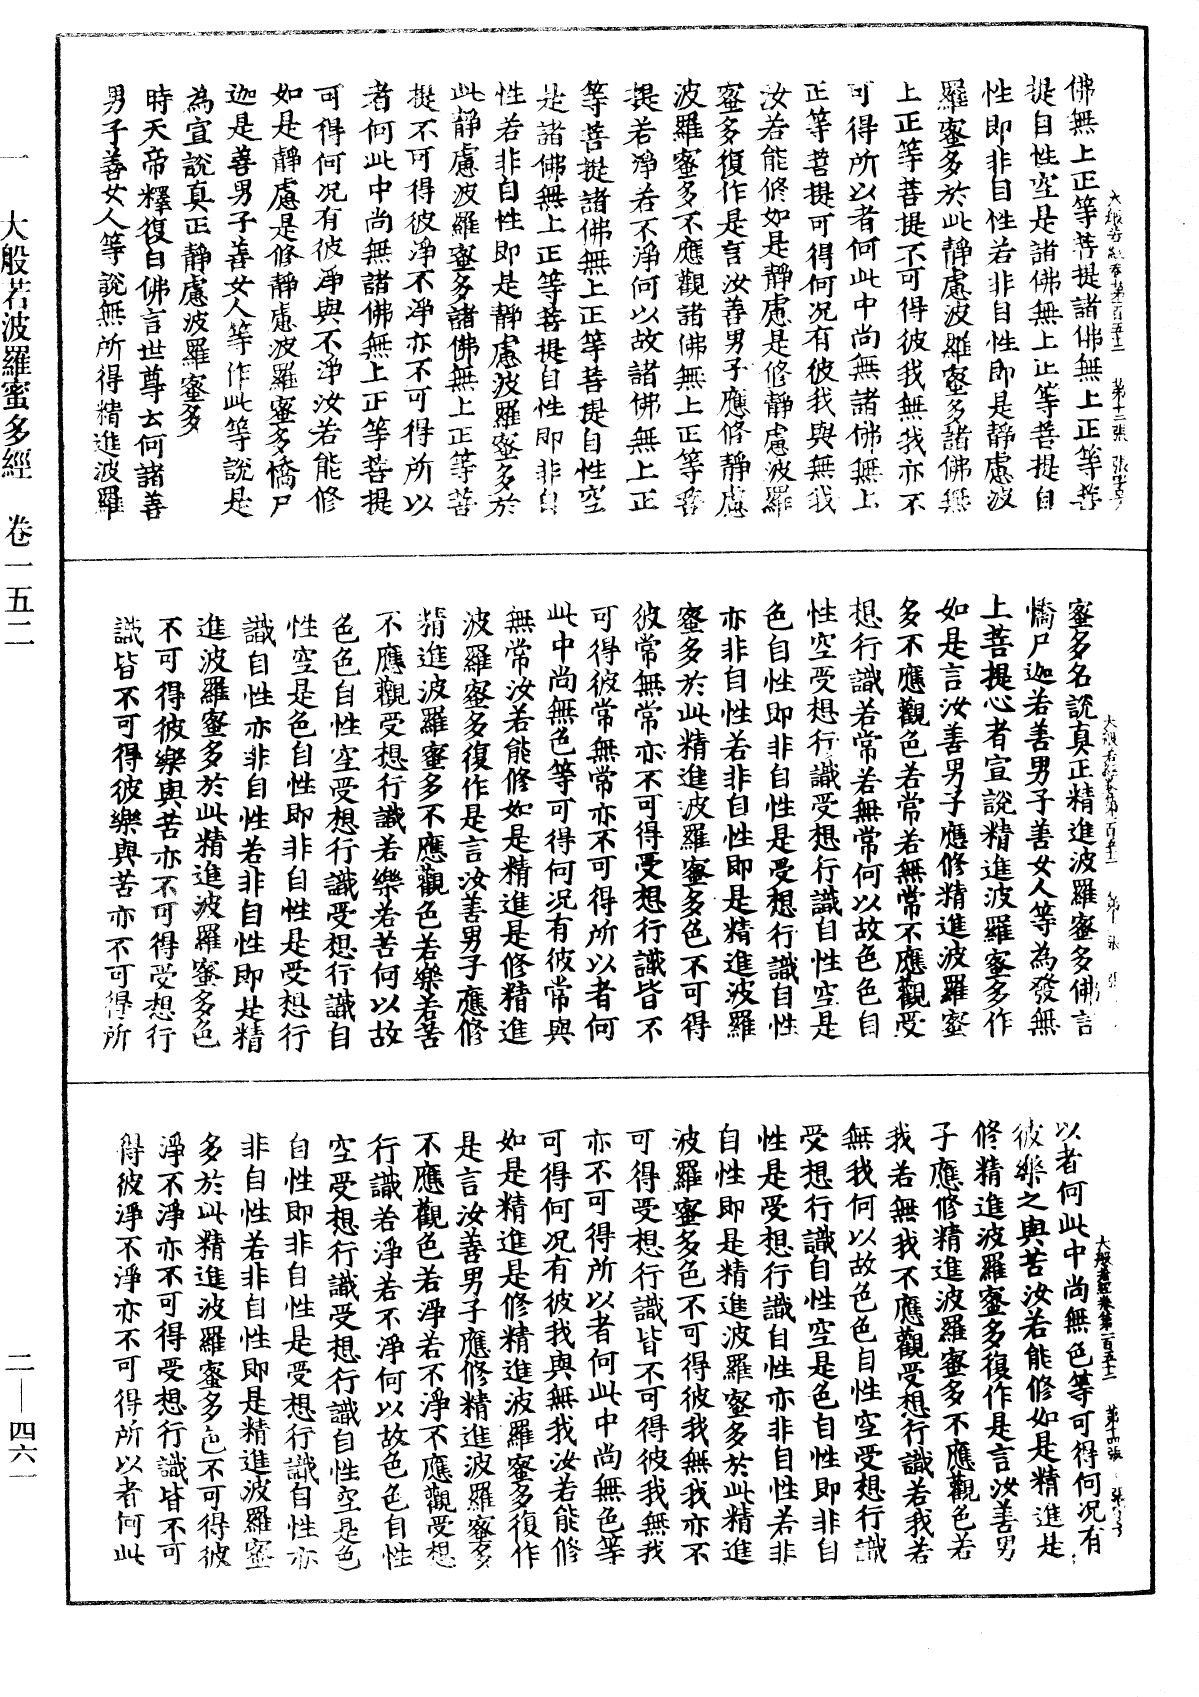 佛無上正等菩提諸佛無上正等菩
提自性空是諸佛無上正等菩提自
性即非自性若非自性即是靜慮波
羅蜜多於此靜慮波羅蜜多諸佛無
上正等菩提不可得彼我無我亦不
可得所以者何此中尚無諸佛無上
正等菩提可得何況有彼我與無我
汝若能修如是靜慮是修靜慮波羅
蜜多復作是言汝善男子應修靜慮
波羅蜜多不應觀諸佛無上正等菩
提若淨若不淨何以故諸佛無上正
等菩提諸佛無上正等菩提自性空
是諸佛無上正等菩提自性即非自
性若非自性即是靜慮波羅蜜多於
此靜慮波羅蜜多諸佛無上正等菩
提不可得彼淨不淨亦不可得所以
者何此中尚無諸佛無上正等菩提
可得何況有彼淨與不淨汝若能修
如是靜慮是修靜慮波羅蜜多憍尸
迦是善男子善女人等作此等說是
為宣說真正靜慮波羅蜜多
時天帝釋復白佛言世尊云何諸善
男子善女人等說無所得精進波羅
大般若經卷第一百五十二 第十二張
蜜多名說真正精進波羅蜜多佛言
憍尸迦若善男子善女人等為發無
上菩提心者宣說精進波羅蜜多作
如是言汝善男子應修精進波羅蜜
多不應觀色若常若無常不應觀受
想行識若常若無常何以故色色自
性空受想行識受想行識自性空是
色自性即非自性是受想行識自性
亦非自性若非自性即是精進波羅
蜜多於此精進波羅蜜多色不可得
彼常無常亦不可得受想行識皆不
可得彼常無常亦不可得所以者何
此中尚無色等可得何況有彼常與
無常汝若能修如是精進是修精進
波羅蜜多復作是言汝善男子應修
精進波羅蜜多不應觀色若樂若苦
不應觀受想行識若樂若苦何以故
色色自性空受想行識受想行識自
性空是色自性即非自性是受想行
識自性亦非自性若非自性即是精
進波羅蜜多於此精進波羅蜜多色
不可得彼樂與苦亦不可得受想行
識皆不可得彼樂與苦亦不可得所
大般若經卷第一百五十二
以者何此中尚無色等可得何況有
彼樂之與苦汝若能修如是精進是
修精進波羅蜜多復作是言汝善男
子應修精進波羅蜜多不應觀色若
我若無我不應觀受想行識若我若
無我何以故色色自性空受想行識
受想行識自性空是色自性即非自
性是受想行識自性亦非自性若非
自性即是精進波羅蜜多於此精進
波羅蜜多色不可得彼我無我亦不
可得受想行識皆不可得彼我無我
亦不可得所以者何此中尚無色等
可得何況有彼我與無我汝若能修
如是精進是修精進波羅蜜多復作
是言汝善男子應修精進波羅蜜多
不應觀色若淨若不淨不應觀受想
行識若淨若不淨何以故色色自性
空受想行識受想行識自性空是色
自性即非自性是受想行識自性亦
非自性若非自性即是精進波羅蜜
多於此精進波羅蜜多色不可得彼
淨不淨亦不可得受想行識皆不可
得彼淨不淨亦不可得所以者何此
大般若經卷第一百五十二 第十四張
一 大般若波羅蜜多經 卷一五二
二—四六一